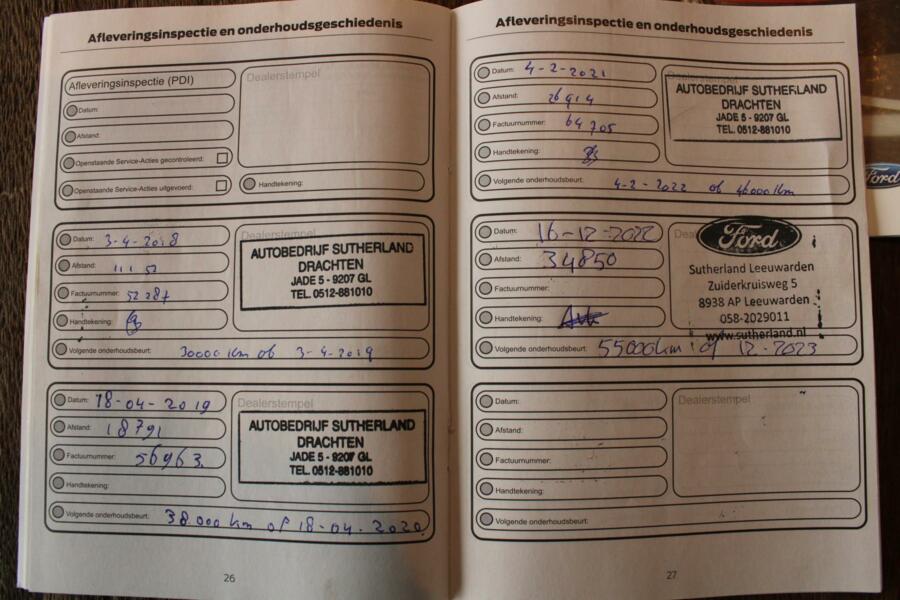 Afleveringsinspectie en onderhoudsgeschiedenis
Afleveringsinspectie (PDI)
Datum:
Afstand:
Openstaande Service-Acties gecontroleerd:
Openstaande Service-Acties uitgevoerd:
Dealerstempel
Handtekening:
Datum: 3-4-2018
Afstand: 11152
Factuurnummer: 52287
Handtekening:
Volgende onderhoudsbeurt: 30000 km of 3-4-2019
Dealerstempel
AUTOBEDRIJF SUTHERLAND
DRACHTEN
JADE 5 - 9207 GL
TEL. 0512-881010
Datum: 18-04-2019
Afstand: 18791
Factuurnummer: 56963
Handtekening:
Volgende onderhoudsbeurt: 38.000 km of 18-04-2020
Dealerstempel
AUTOBEDRIJF SUTHERLAND
DRACHTEN
JADE 5 - 9207 GL
TEL. 0512-881010
26
Afleveringsinspectie en onderhoudsgeschiedenis
Datum: 4-2-2021
Afstand: 26914
Factuurnummer: 64705
Handtekening:
Volgende onderhoudsbeurt: 4-2-2022 of 46000 km
Dealerstempel
AUTOBEDRIJF SUTHERLAND
DRACHTEN
JADE 5 - 9207 GL
TEL. 0512-881010
Datum: 16-12-2022
Afstand: 34850
Factuurnummer:
Handtekening:
Volgende onderhoudsbeurt: 55000km of 12-2023
Ford
Sutherland Leeuwarden
Zuiderkruisweg 5
8938 AP Leeuwarden
058-2029011
www.sutherland.nl
Datum:
Afstand:
Factuurnummer:
Handtekening:
Volgende onderhoudsbeurt:
Dealerstempel
27
Ford